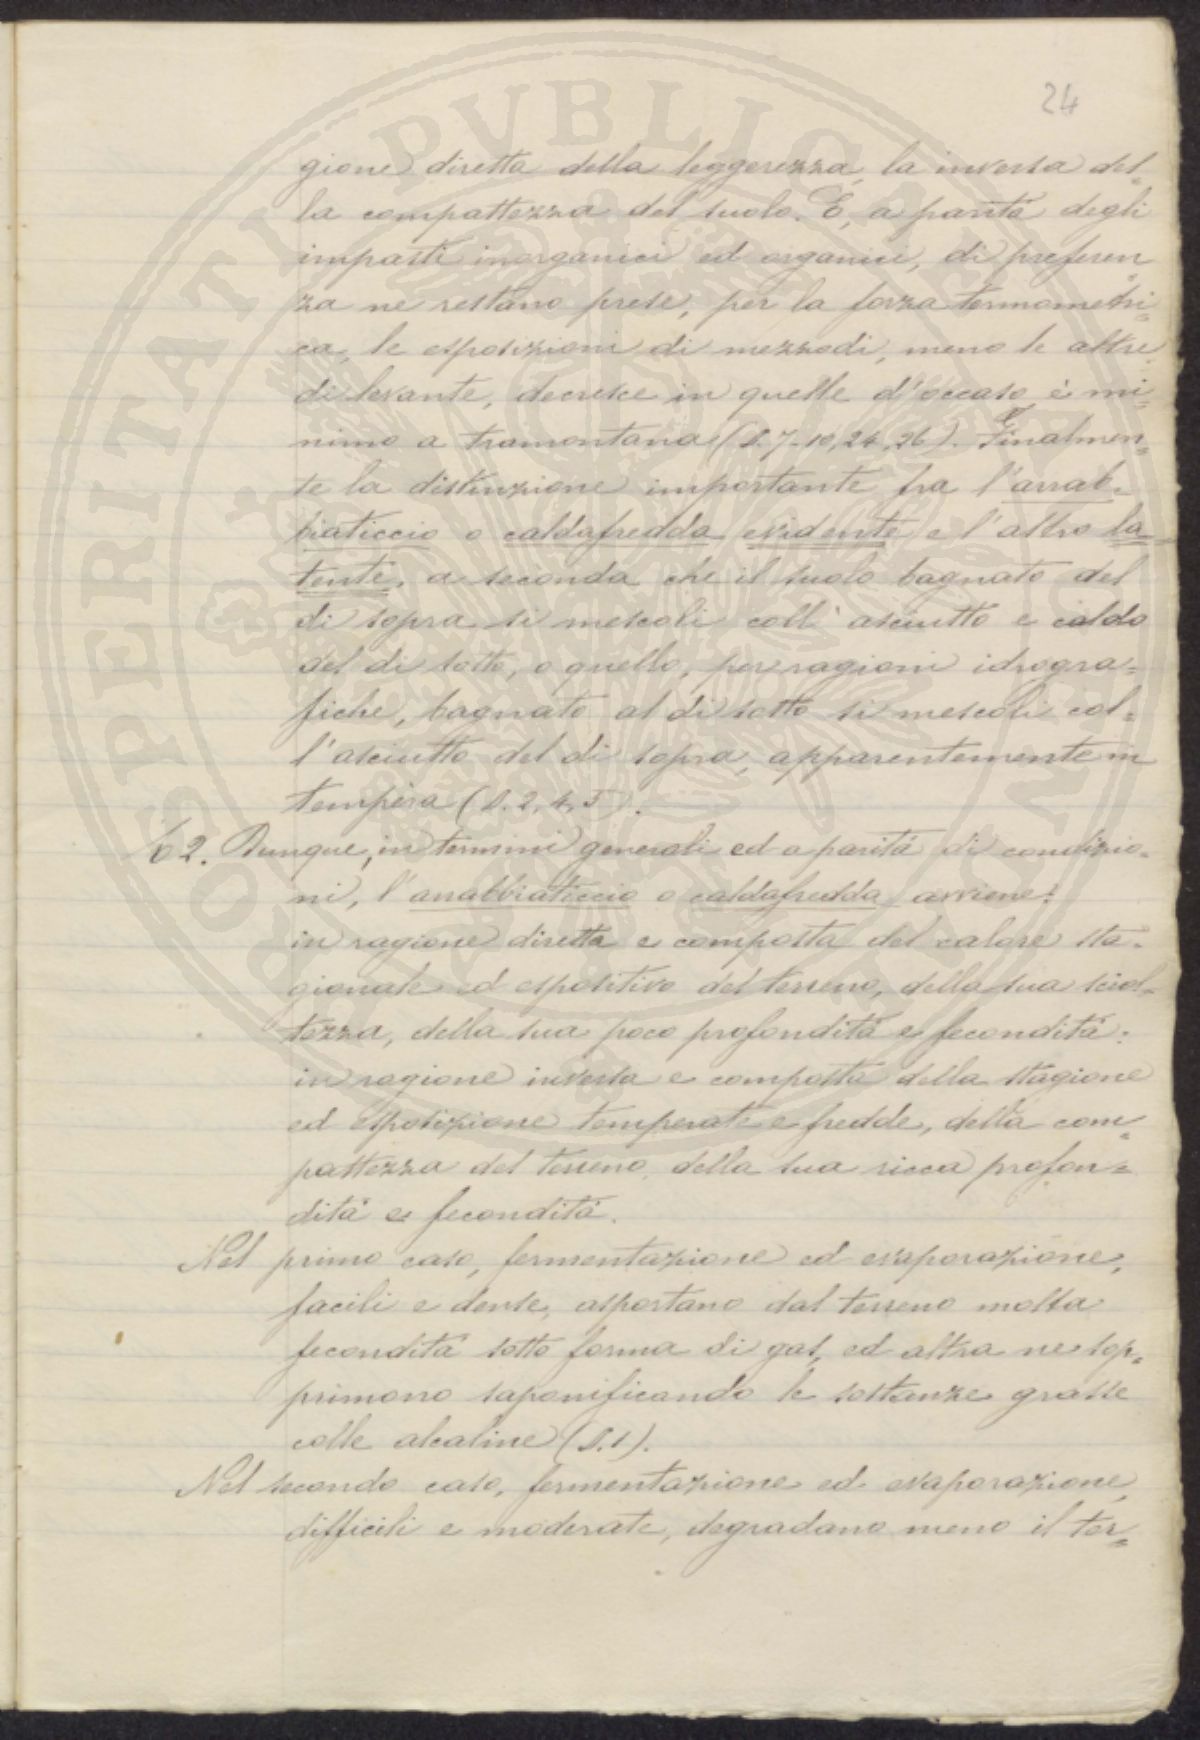 24
gione diretta della leggerezza, la inversa del-
la compattezza del suolo. E, a parità degli
impasti inorganici ed organici, di preferen
za ne restano prese, per la forza termometri-
ca, le esposizioni di mezzodì, meno le altre
di levante, decresce in quelle d'occaso è mi-
nimo a tramontana (S. 7-10, 24, 26). Finalmen-
te la distinzione importante fra l'arrab-
biaticcio o caldafredda evidente e l'altro la
tente, a seconda che il suolo bagnato del
di sopra si mescoli coll'asciutto e caldo
del di sotto, o quello, per ragioni idrogra=
fiche, bagnato al di sotto si mescoli col-
l'asciutto del di sopra, apparentemente in
tempera (S. 2, 4, 5).
62. Dunque, in termini generali ed a parità di condizio-
ni, l'arrabbiaticcio o caldafredda avviene:
in ragione diretta e composta del calore sta-
gionale ed espositivo del terreno, della sua sciol-
tezza, della sua poco profondità e fecondità:
in ragione inversa e composta della stagione
ed esposizione temperate e fredde, della com-
pattezza del terreno, della sua ricca profon=
dità e fecondità.
Nel primo caso, fermentazione ed evaporazione,
facili e dense, asportano dal terreno molta
fecondità sotto forma di gas, ed altra ne sop-
primono saponificando le sostanze grasse
colle alcaline (S. 1).
Nel secondo caso, fermentazione ed evaporazione,
difficili e moderate, degradano meno il ter=
PROSPERITATI PVBLICAE